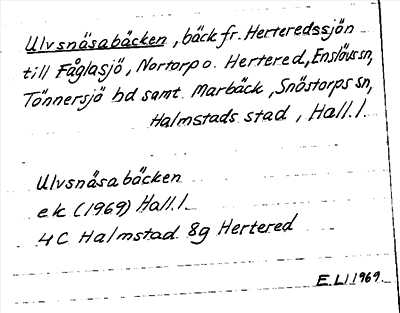 Ulvsnäsabäcken, bäck fr. Herteredssjön
till Fåglasjö, Nortorp o. Hertered, Enslövs sn,
Tönnersjö hd samt Marbäck, Snöstorps sn,
Halmstads stad, Hall. l.
Ulvsnäsabäcken
ek (1969) Hall. l.
4C Halmstad 8g Hertered
E. Ll 1969.